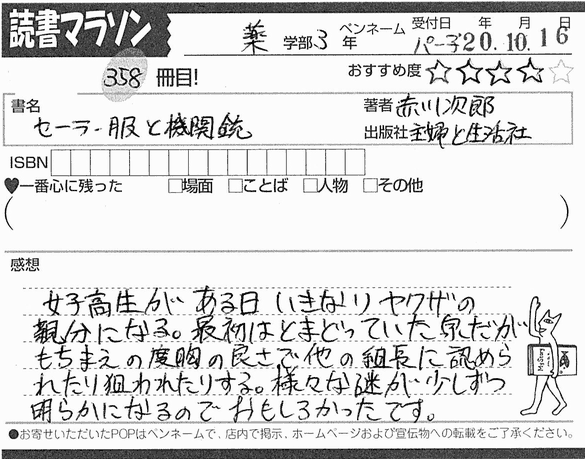 読書マラソン
薬 学部3年 ペンネーム パー子 受付日 20年10月16日
358冊目! おすすめ度 ☆☆☆☆☆
書名 セーラー服と機関銃
著者 赤川次郎
出版社 主婦と生活社
ISBN
♥一番心に残った □場面 □ことば □人物 □その他
( )
感想
女子高生が ある日 いきなり ヤクザの
親分になる。最初はとまどっていた泉だが
もちまえの度胸の良さで他の組長に認めら
れたり狙われたりする。様々な謎が少しずつ
明らかになるので おもしろかったです。
●お寄せいただいたPOPはペンネームで、店内で掲示、ホームページおよび宣伝物への転載をご了承ください。